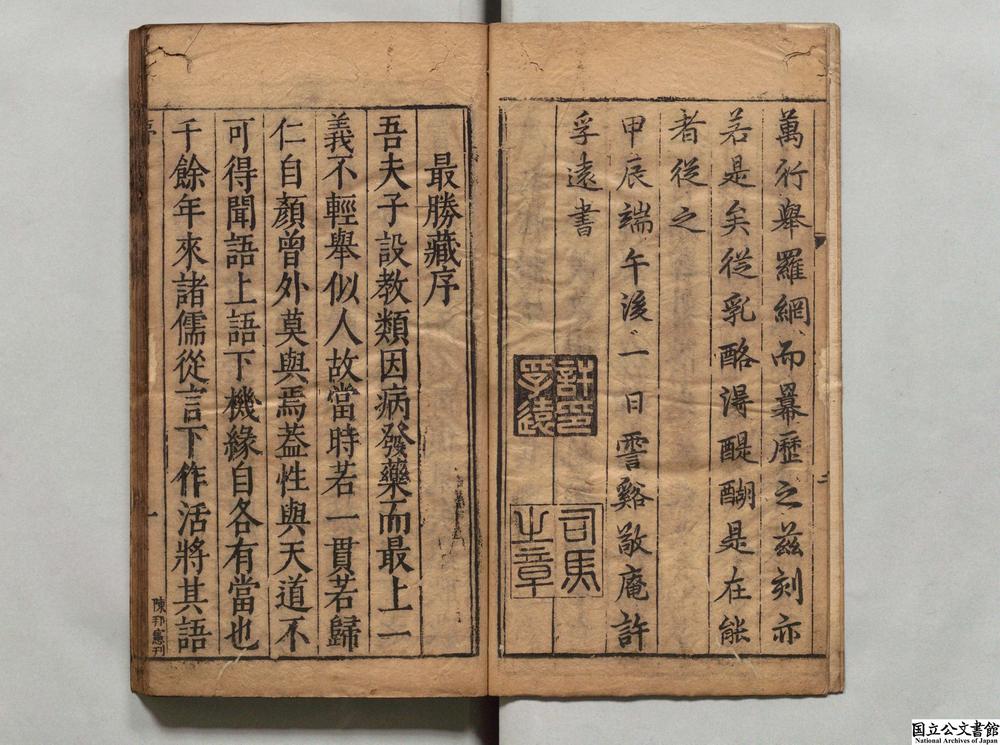 萬行舉羅網而冪歷之茲刻亦
若是矣從乳酪得醍醐是在能
者從之
甲辰端午後一日霅谿敬庵許
孚遠書
許印
孚遠
司馬
之章
最勝藏序
吾夫子設教類因病發藥而最上一
義不輕舉似人故當時若一貫若歸
仁自顏曾外莫與焉蓋性與天道不
可得聞語上語下機緣自各有當也
千餘年來諸儒從言下作活將其語
序
一
陳邦憲刊
国立公文書館
National Archives of Japan